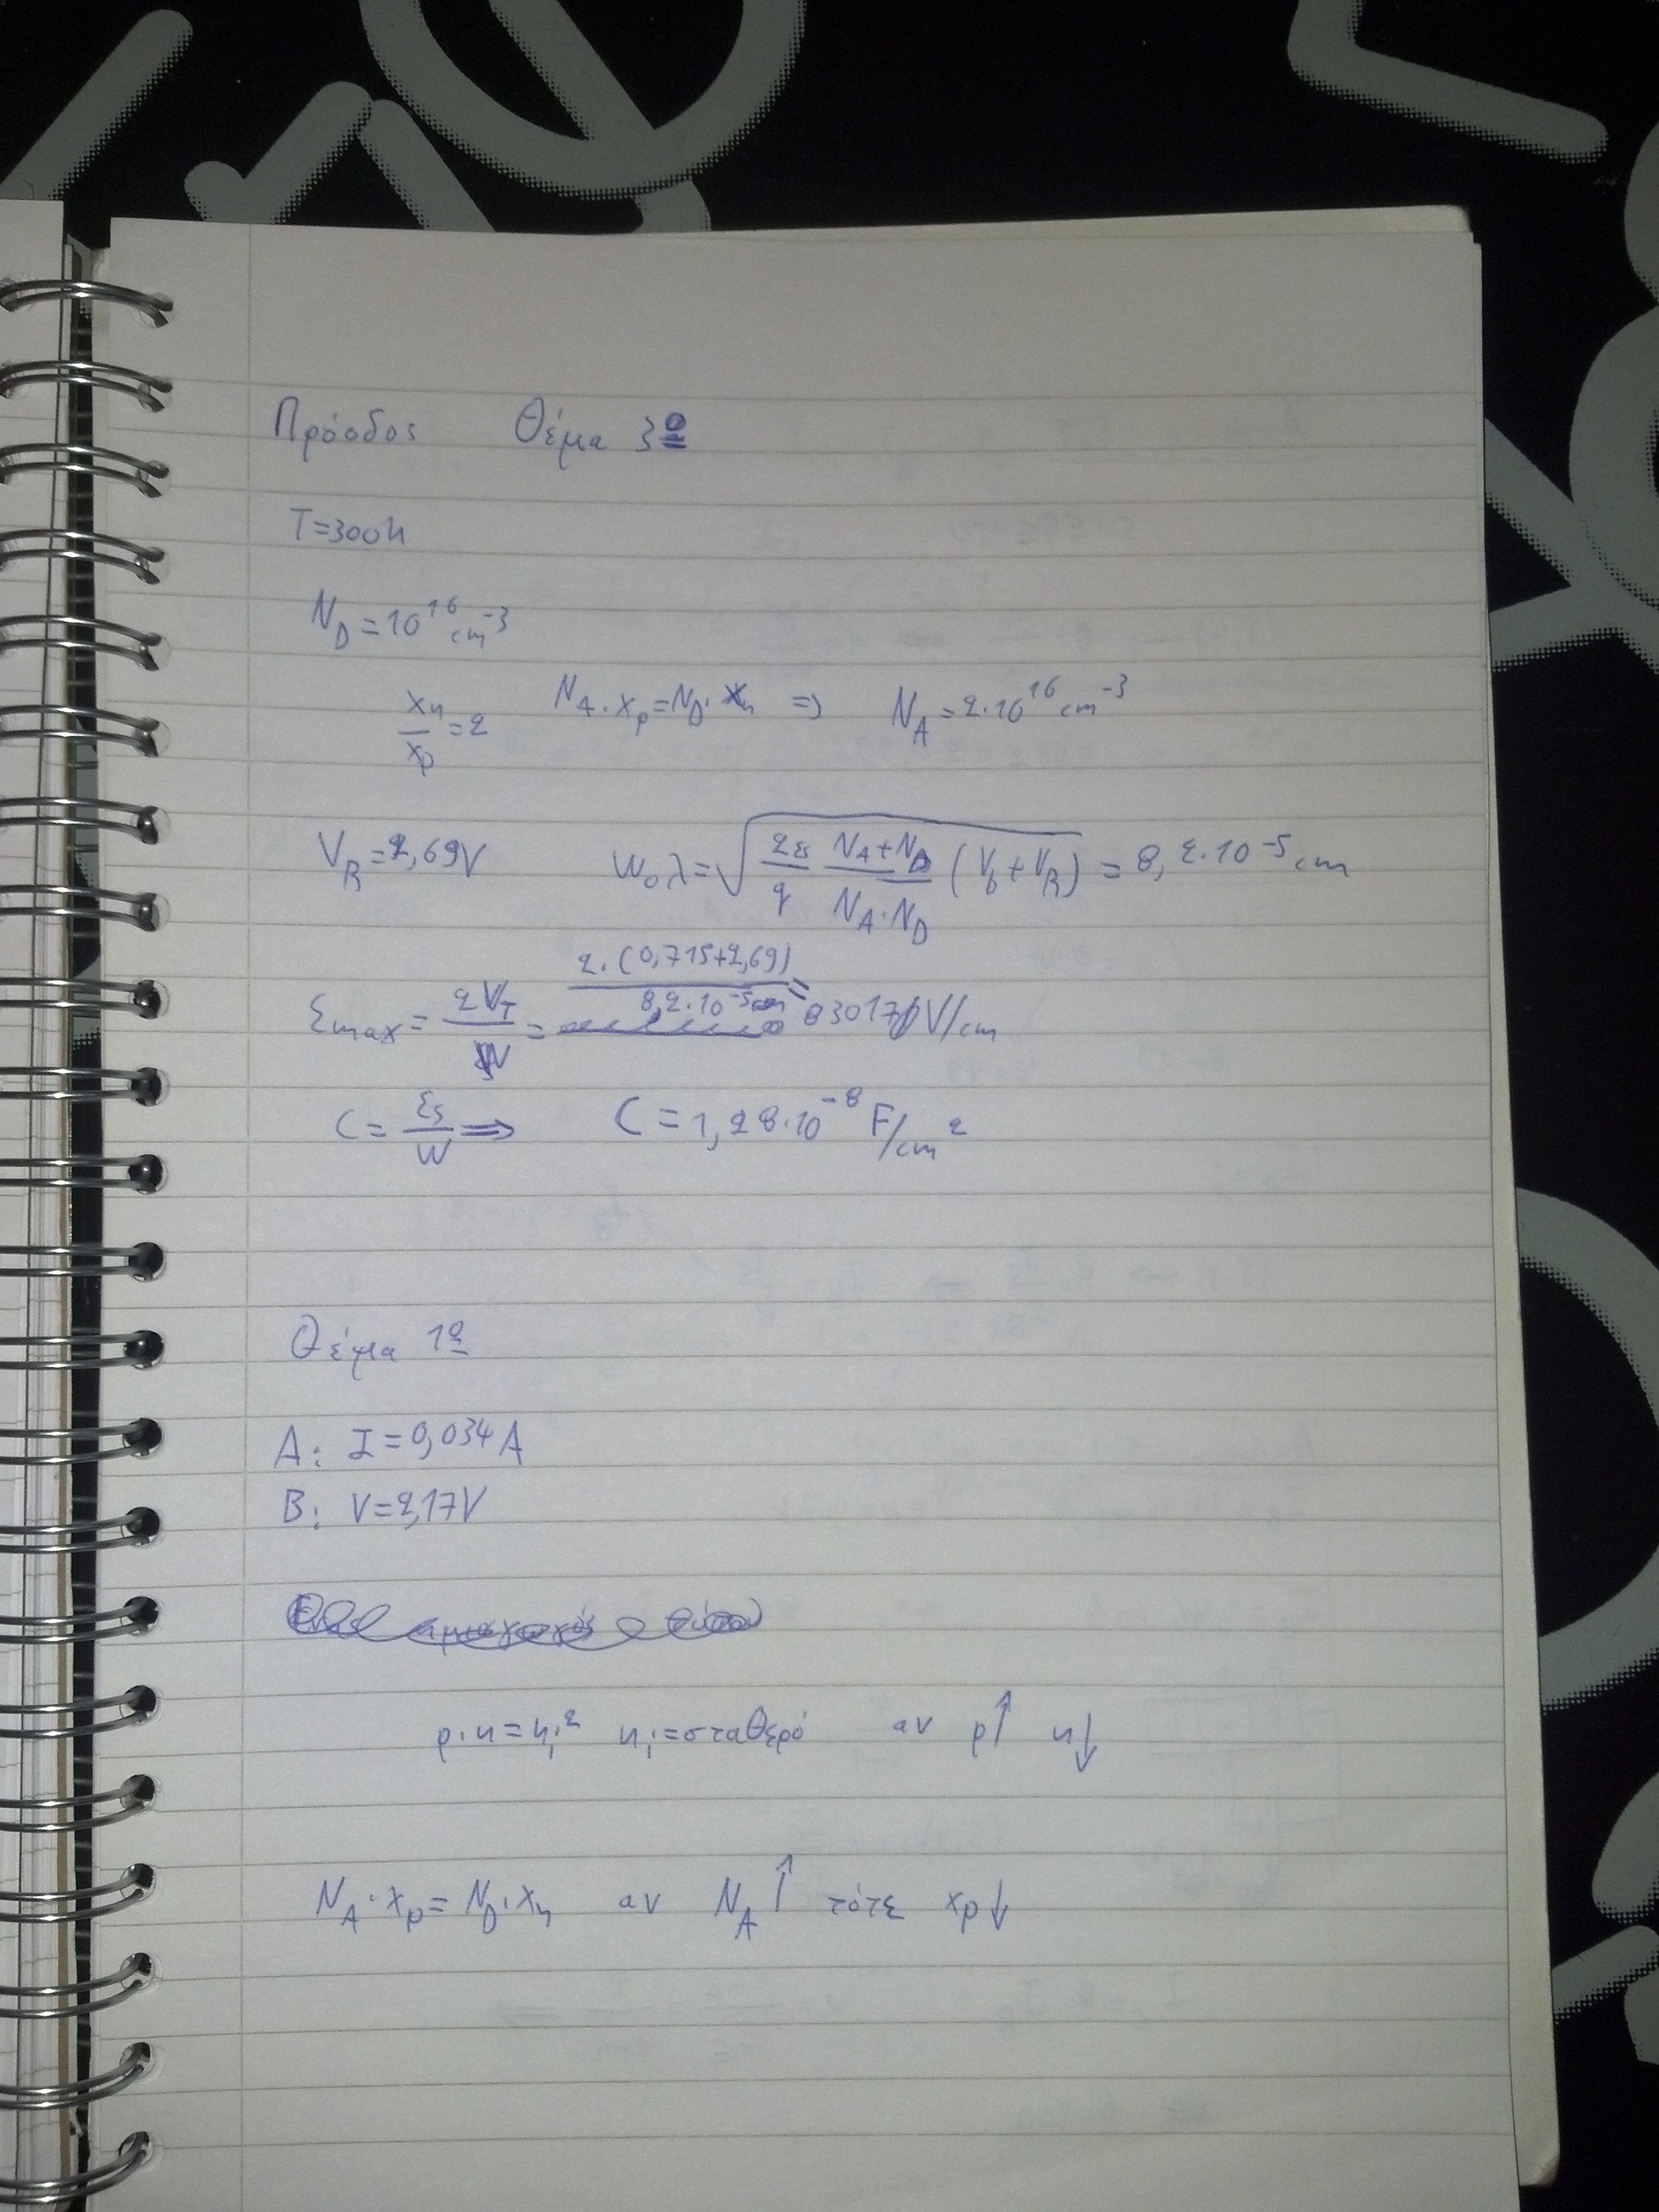 Πρόοδος Θέμα 3º
T=300K
N_D = 10^16 cm^-3
x_n/x_p = 2 N_A · x_p = N_D · x_n => N_A = 2·10^16 cm^-3
V_R = 2,69V W_ολ = √(2ε/q (N_A+N_D)/(N_A·N_D) (V_b+V_R)) = 8,2·10^-5 cm
ε_max = 2V_T/W = 2·(0,715+2,69)/8,2·10^-5 cm = 83017 V/cm
C = ε_s/W ⟹ C = 1,28·10^-8 F/cm^2
Θέμα 1º
A: I = 0,034 A
B: V = 2,17V
p·n = n_i^2 n_i = σταθερό αν p↑ n↓
N_A · x_p = N_D · x_n αν N_A↑ τότε x_p↓